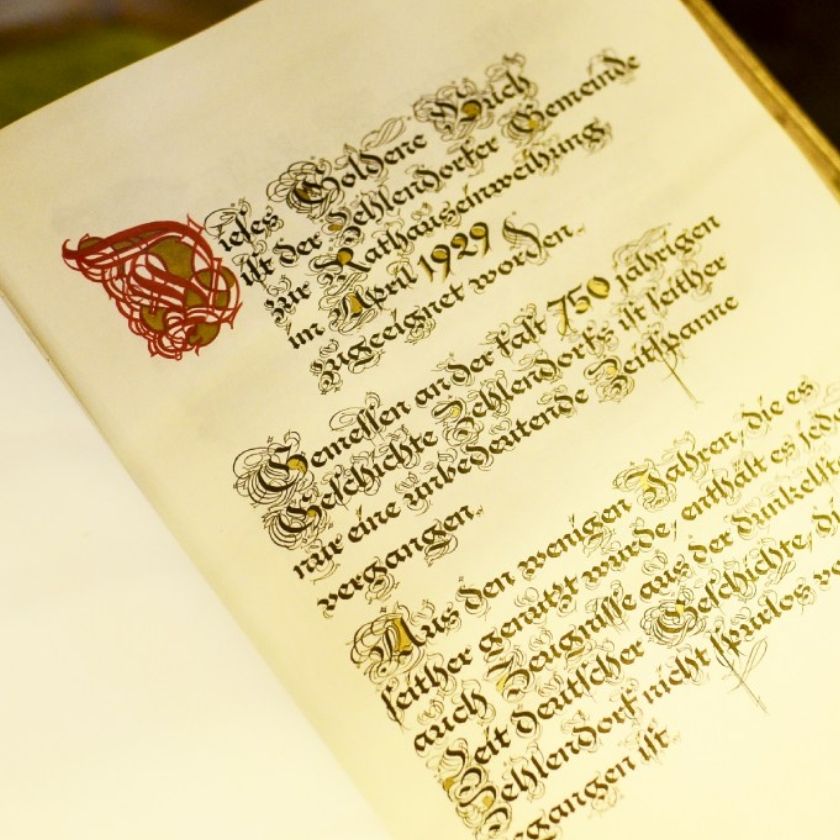 Dieses Goldene Buch
ist der Zehlendorfer Gemeinde
zur Rathauseinweihung
im April 1929
zugeeignet worden.
Gemessen an der fast 750 jährigen
Geschichte Zehlendorfs ist seither
nur eine unbedeutende Zeitspanne
vergangen.
Aus den wenigen Jahren, die es
seither genutzt wurde, enthält es
auch Zeugnisse aus der
Zeit deutscher Geschichte,
Zehlendorf nicht spurlos
ist.